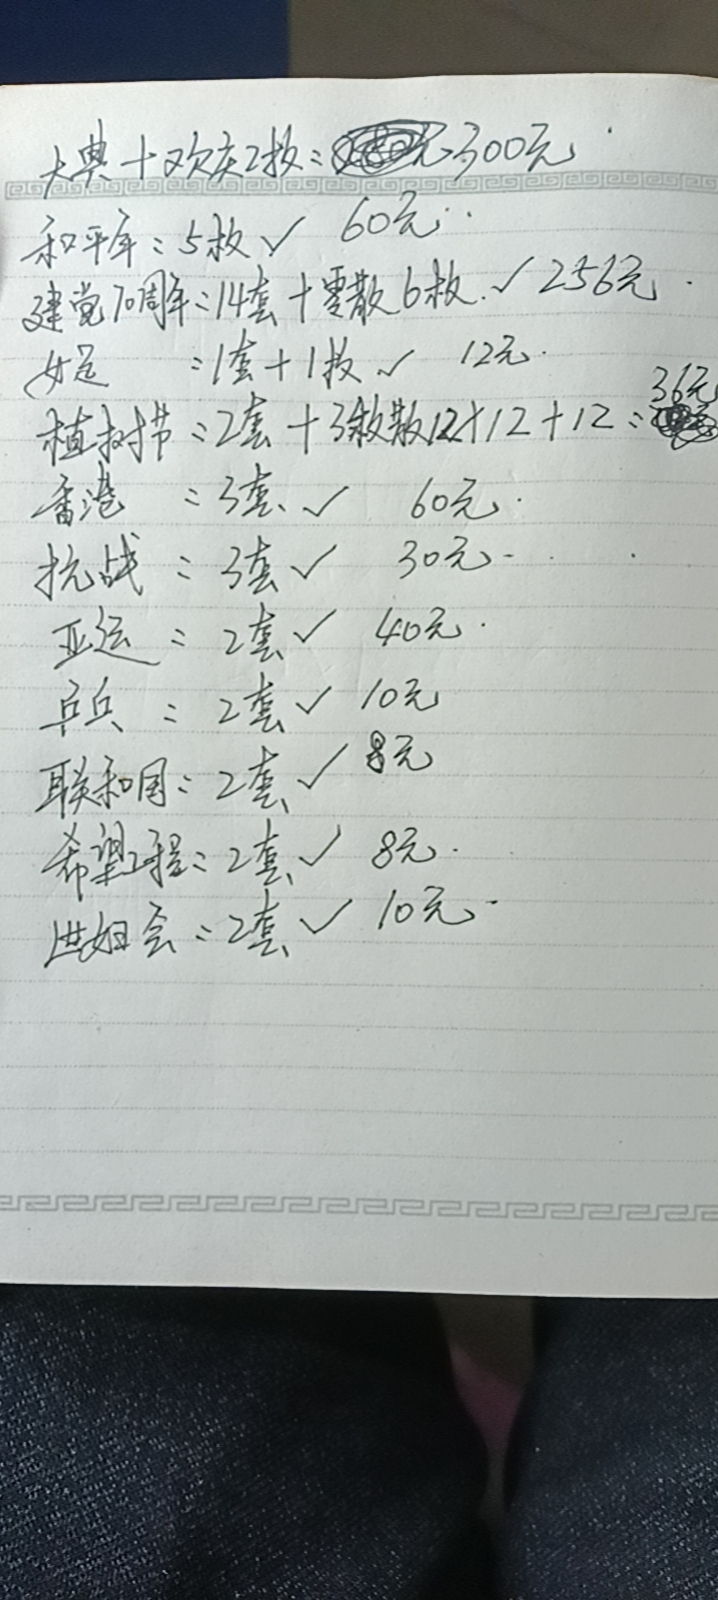 大典+欢庆2枚=300元
和平年=5枚✓ 60元
建党70周年=14套+零散6枚.✓256元
女足 =1套+1枚✓ 12元
植树节=2套+3枚散12+12+12=36元
香港 =3套✓ 60元
抗战 =3套✓ 30元
亚运 =2套✓ 40元
乒乓 =2套✓ 10元
联和国=2套✓ 8元
希望工程=2套✓ 8元
世妇会=2套✓ 10元